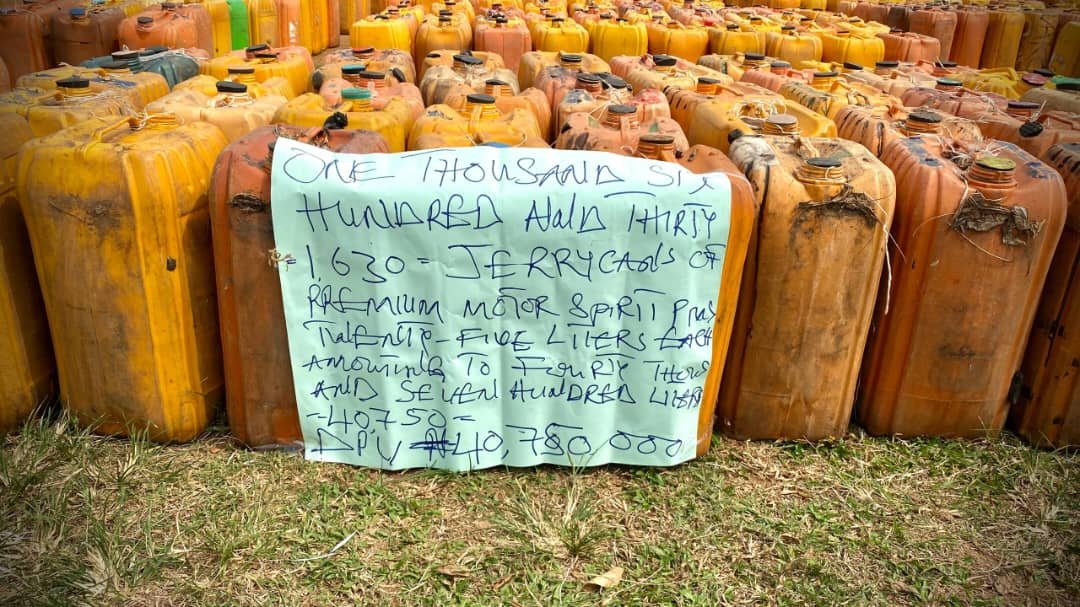 ONE THOUSAND SIX
HUNDRED AND THIRTY
=1,630= JERRYCANS OF
PREMIUM MOTOR SPIRIT PMS
TWENTY-FIVE LITERS EACH
AMOUNTING TO FOURTY THOUS
AND SEVEN HUNDRED LITERS
=40,750=
DPV ₦40,750,000